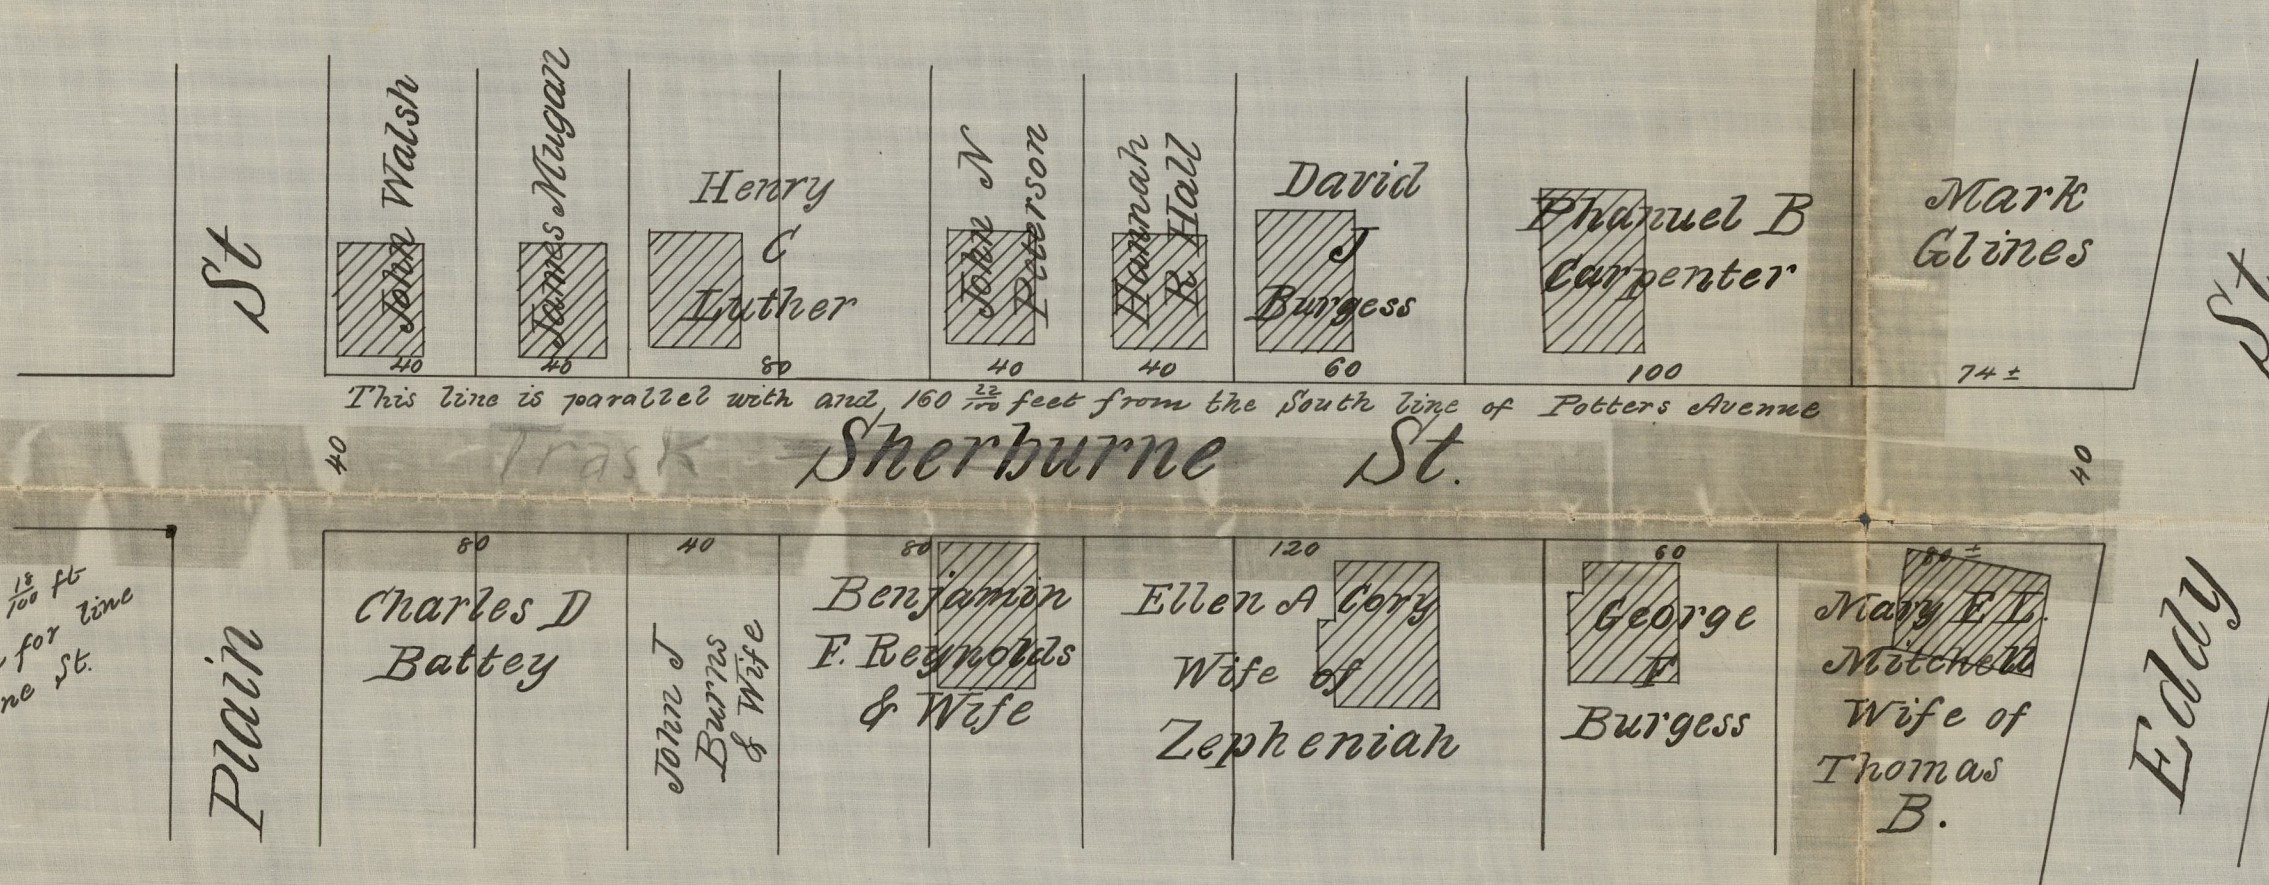 John Walsh
James Mugan
Henry
C
Luther
John N
Peterson
Hannah
R Hall
David
J
Burgess
Phanuel B
Carpenter
Mark
Glines
St
St
40
40
80
40
40
60
100
74 ±
This line is parallel with and 160 22/100 feet from the South line of Potters Avenue
40
Trask
Sherburne St.
40
80
40
80
120
60
80 ±
18/100 ft
for line
ne St.
Plain
Charles D
Battey
John J
Burns
& Wife
Benjamin
F. Reynolds
& Wife
Ellen A Cory
Wife of
Zepheniah
George
F
Burgess
Mary E L.
Mitchell
Wife of
Thomas
B.
Eddy